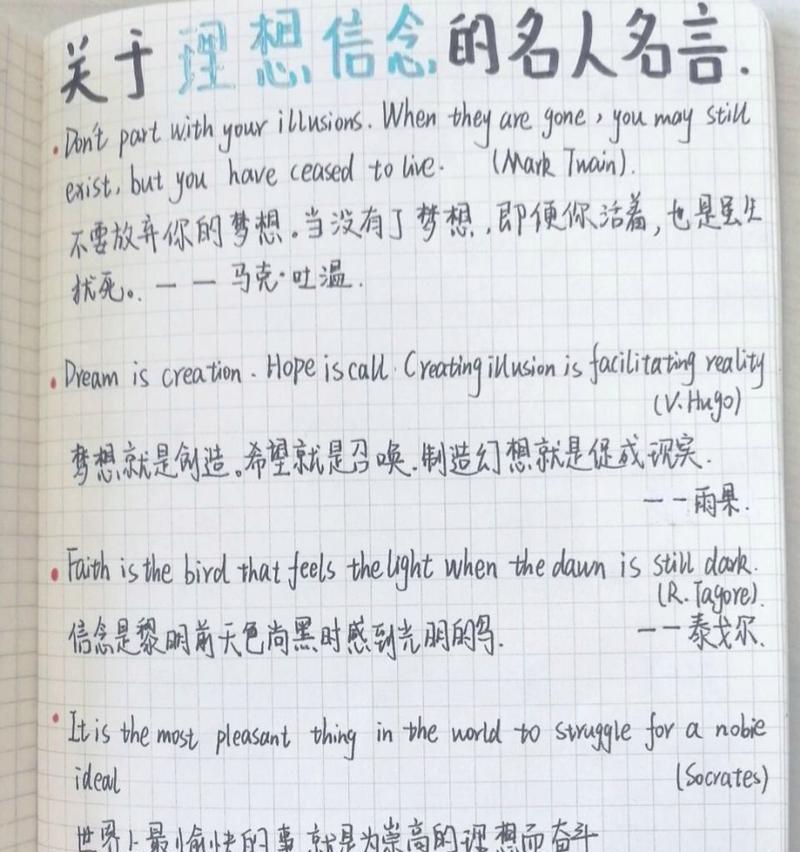 关于理想信念的名人名言.
Don't part with your illusions. When they are gone, you may still
exist, but you have ceased to live. (Mark Twain).
不要放弃你的梦想。当没有了梦想,即便你活着,也是虽生
犹死。——马克·吐温.
Dream is creation. Hope is call. Creating illusion is facilitating reality
(V.Hugo)
梦想就是创造。希望就是召唤.制造幻想就是促成现实.
——雨果.
Faith is the bird that feels the light when the dawn is still dark.
(R.Tagore).
信念是黎明前天色尚黑时感到光明的鸟.
——泰戈尔.
It is the most pleasant thing in the world to struggle for a nobie
ideal (Socrates)
世界上最愉快的事,就是为崇高的理想而奋斗